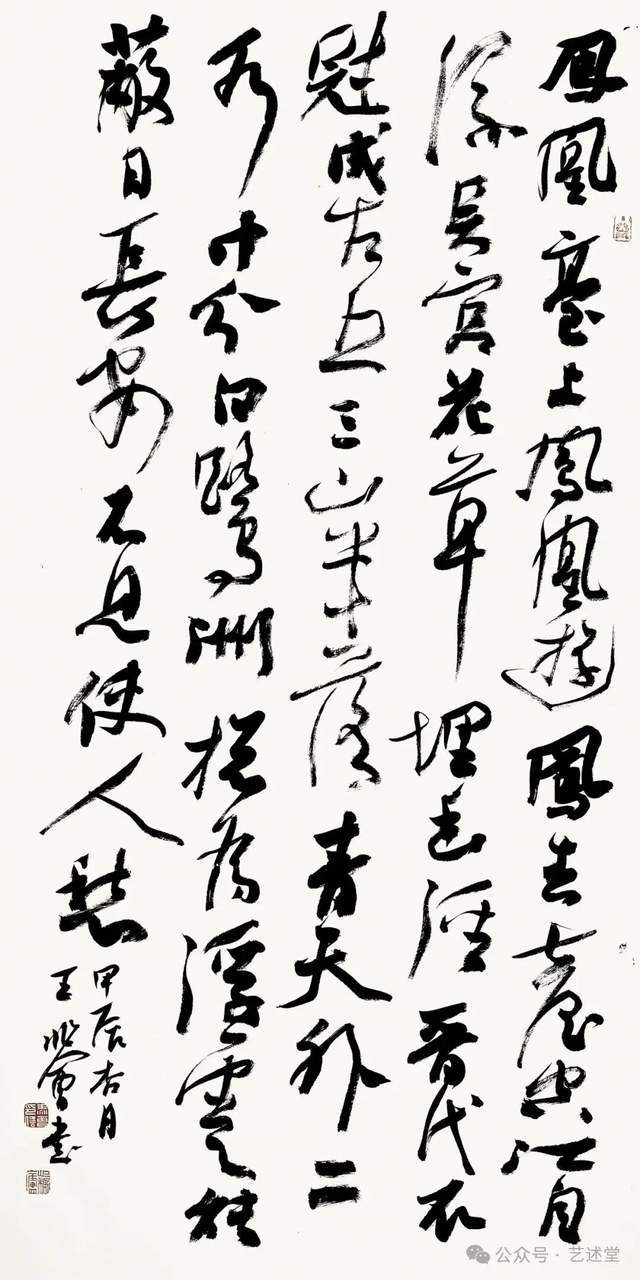 鳳凰臺上鳳凰遊鳳去臺空江自
流吳宮花草埋幽徑晉代衣
冠成古丘三山半落青天外二
水中分白鷺洲總為浮雲能
蔽日長安不見使人愁
甲辰杏月
王
書
公众号·艺述堂